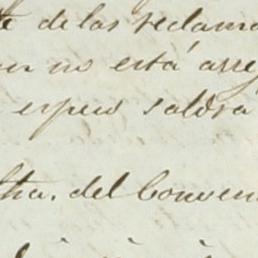 de las reclama
no está arre
espero saldrá
tha. del Conven